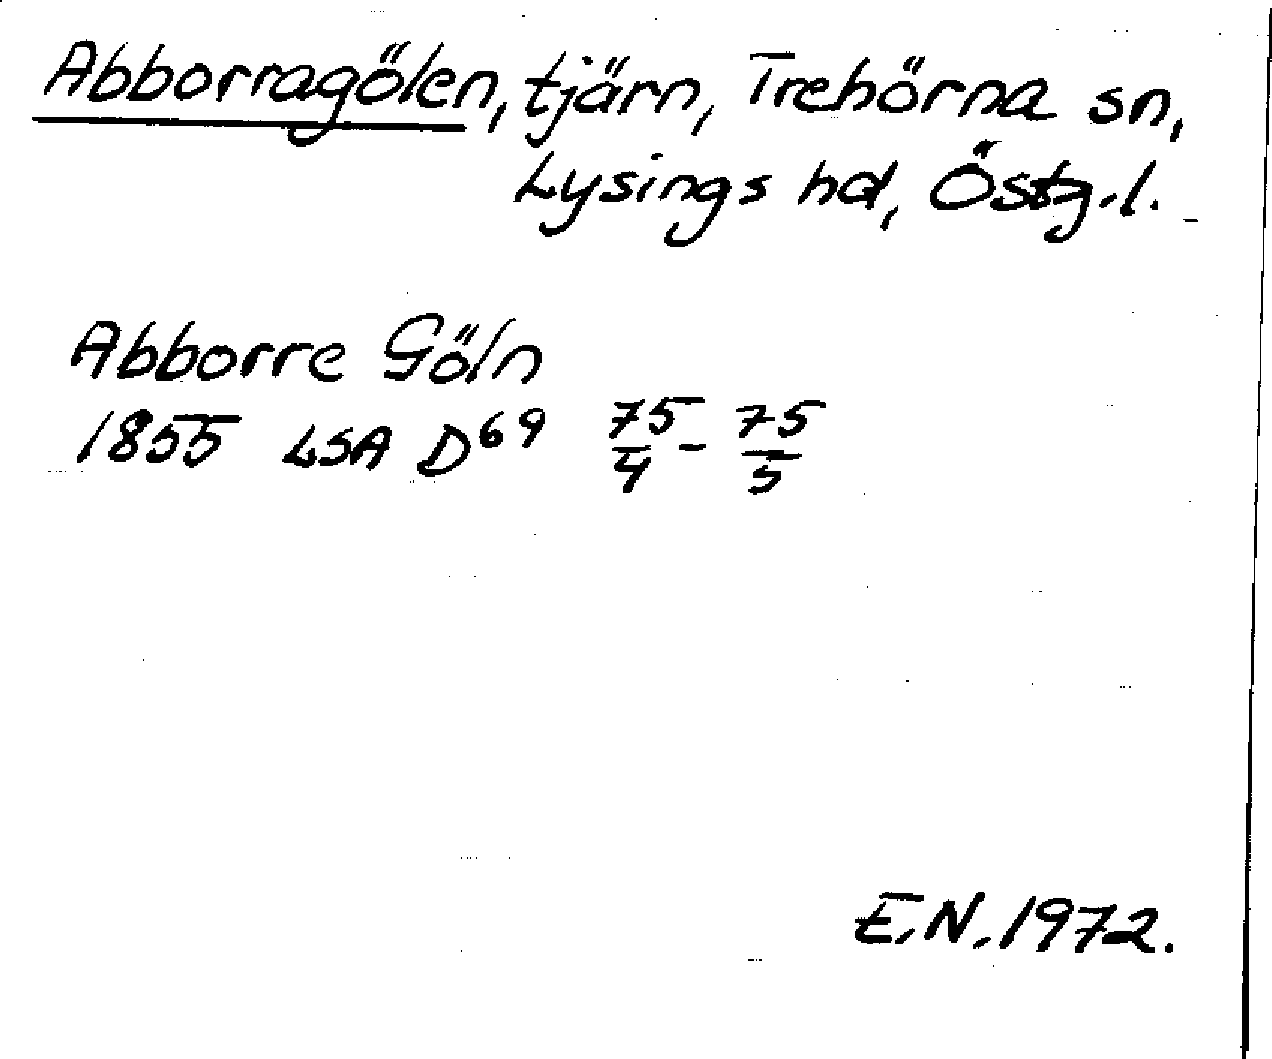 Abborragölen, tjärn, Trehörna sn,
Lysings hd, Östg.l.
Abborre Göln
1855 LSA D69 75/4 - 75/5
E.N. 1972.